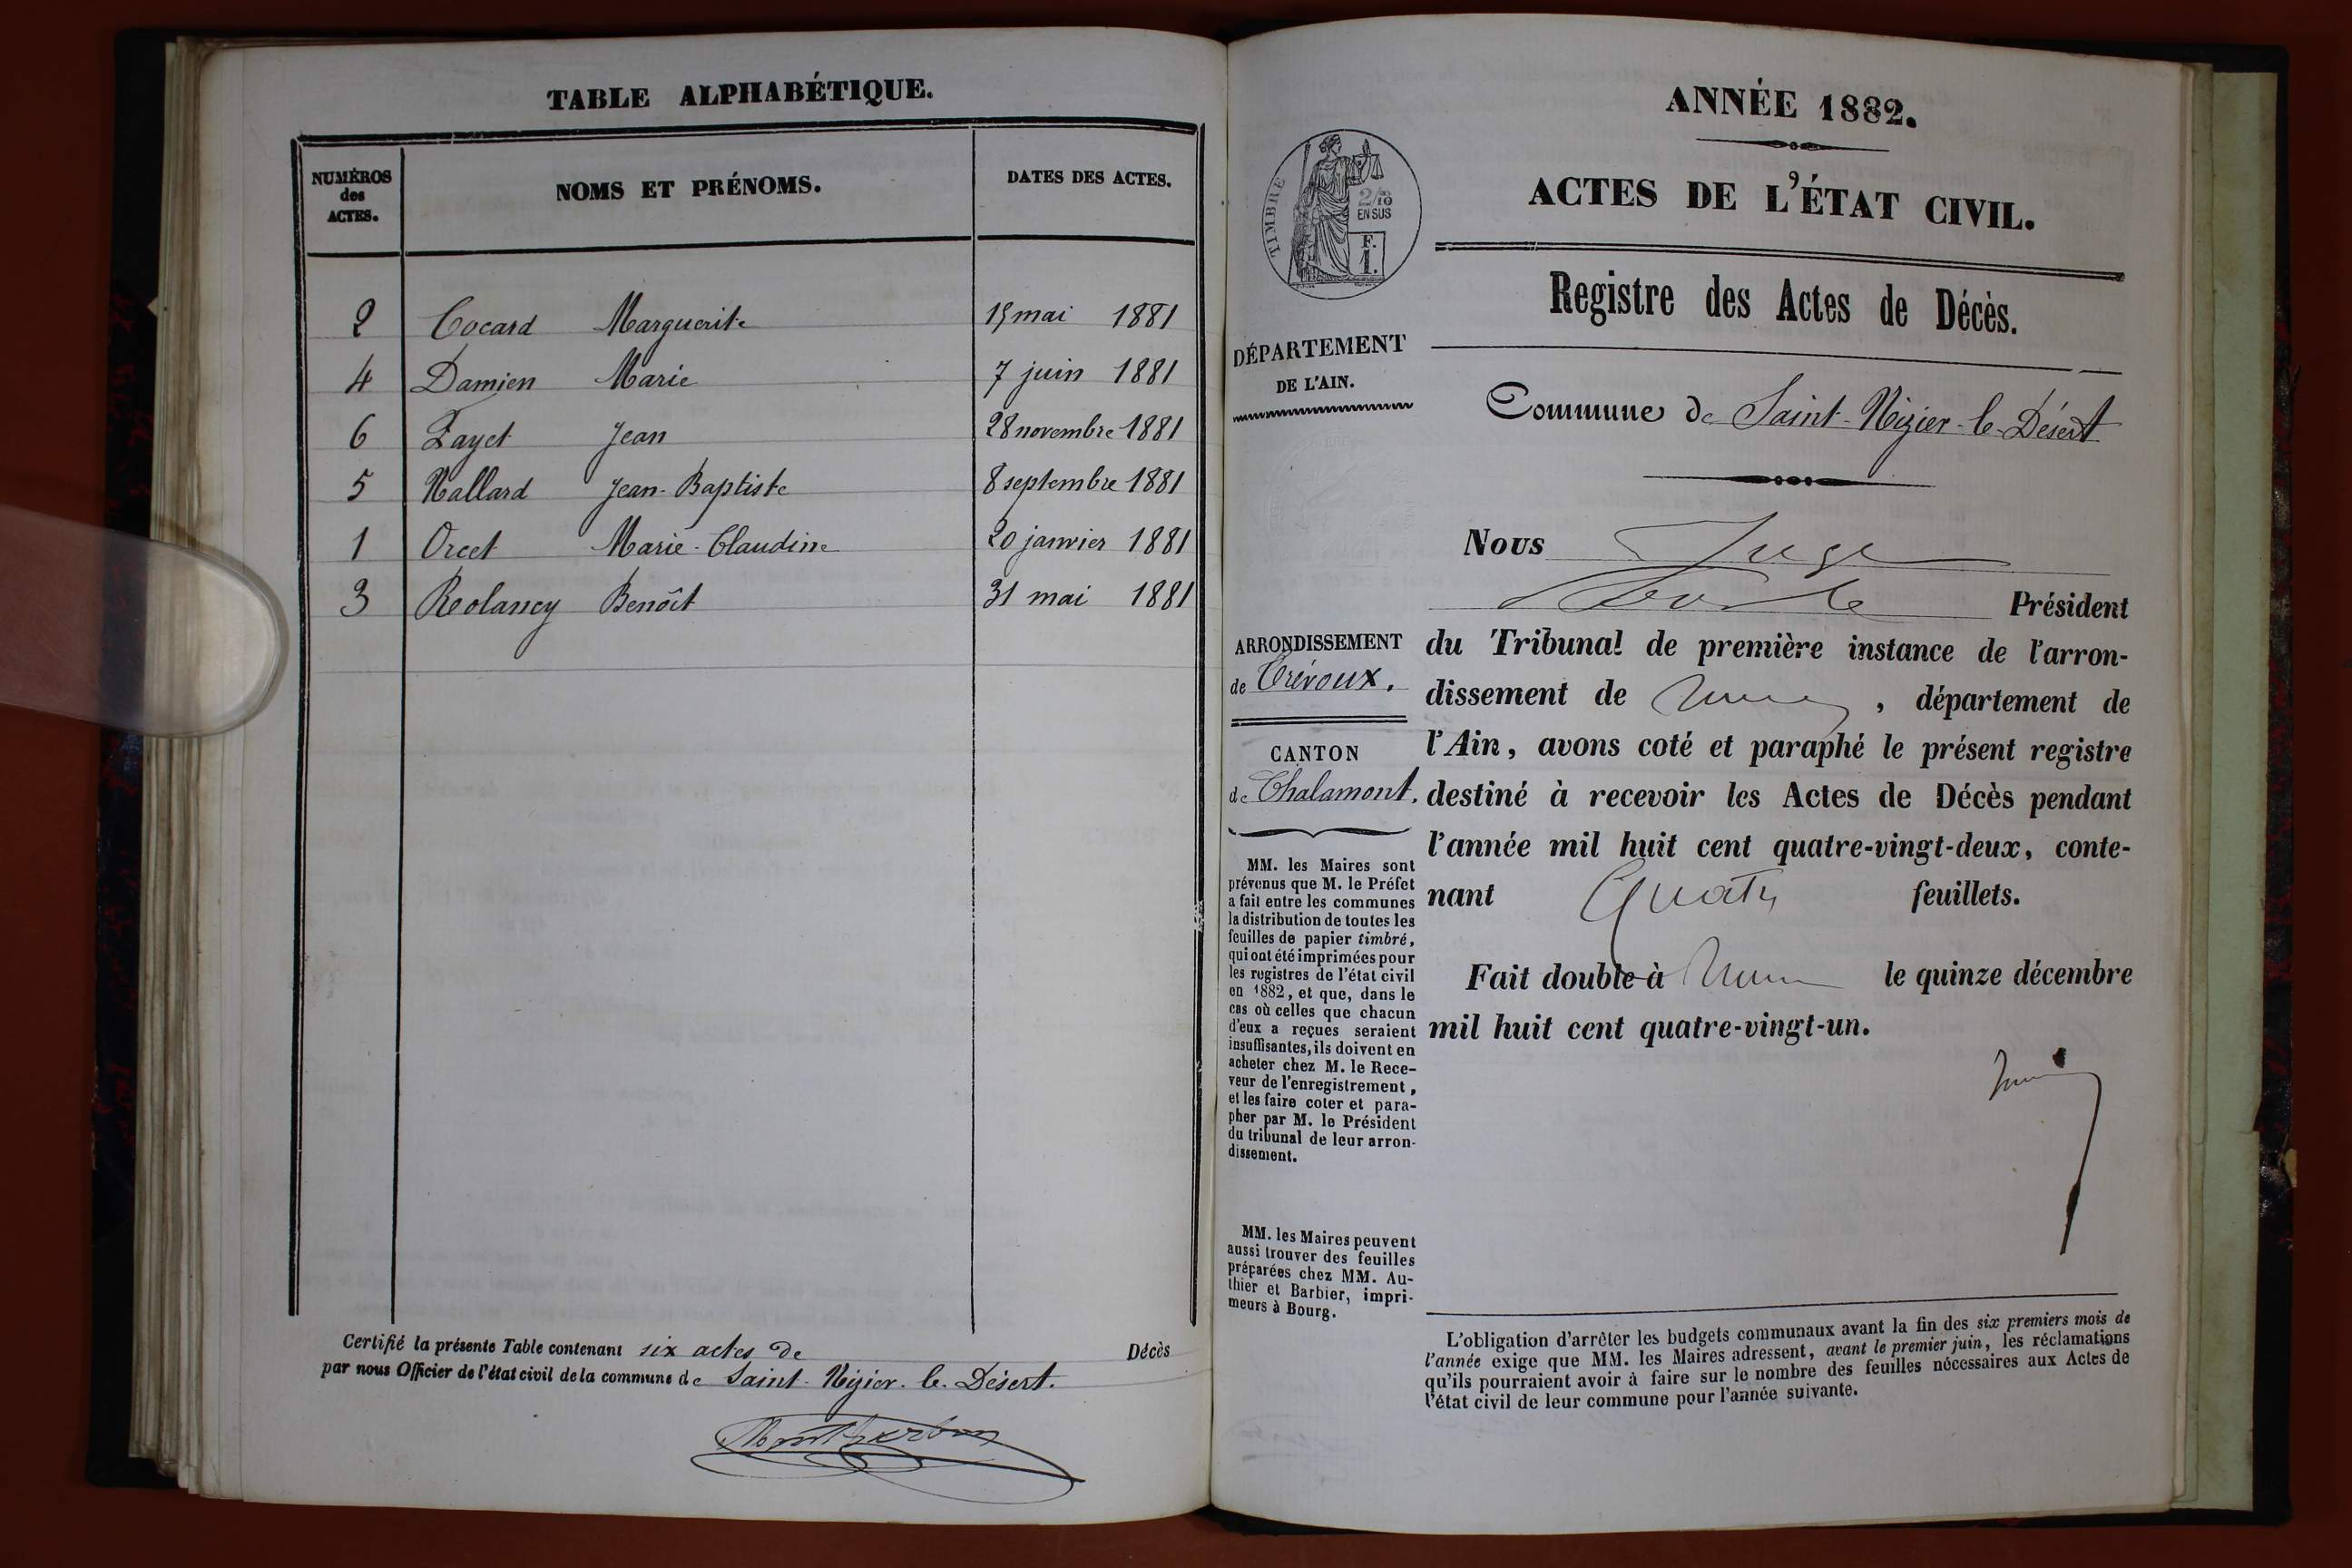 TABLE ALPHABÉTIQUE.
NUMÉROS des ACTES.
NOMS ET PRÉNOMS.
DATES DES ACTES.
2 Cocard Marguerite 15 mai 1881
4 Damien Marie 7 juin 1881
6 Layet Jean 28 novembre 1881
5 Nallard Jean-Baptiste 8 septembre 1881
1 Orcet Marie-Claudine 20 janvier 1881
3 Reolancy Benoît 31 mai 1881
Certifié la présente Table contenant six actes de Décès
par nous Officier de l'état civil de la commune de Saint-Nizier-le-Désert.
ANNÉE 1882.
ACTES DE L'ÉTAT CIVIL.
TIMBRE
2/10
EN SUS
F.
1.
Registre des Actes de Décès.
DÉPARTEMENT
DE L'AIN.
Commune de Saint-Nizier-le-Désert
Nous Juge
Président
ARRONDISSEMENT
de Trévoux.
CANTON
de Chalamont.
du Tribunal de première instance de l'arron-
dissement de , département de
l'Ain, avons coté et paraphé le présent registre
destiné à recevoir les Actes de Décès pendant
l'année mil huit cent quatre-vingt-deux, conte-
nant Quatre feuillets.
Fait double à le quinze décembre
mil huit cent quatre-vingt-un.
MM. les Maires sont
prévenus que M. le Préfet
a fait entre les communes
la distribution de toutes les
feuilles de papier timbré,
qui ont été imprimées pour
les registres de l'état civil
en 1882, et que, dans le
cas où celles que chacun
d'eux a reçues seraient
insuffisantes, ils doivent en
acheter chez M. le Rece-
veur de l'enregistrement,
et les faire coter et para-
pher par M. le Président
du tribunal de leur arron-
dissement.
MM. les Maires peuvent
aussi trouver des feuilles
préparées chez MM. Au-
thier et Barbier, impri-
meurs à Bourg.
L'obligation d'arrêter les budgets communaux avant la fin des six premiers mois de
l'année exige que MM. les Maires adressent, avant le premier juin, les réclamations
qu'ils pourraient avoir à faire sur le nombre des feuilles nécessaires aux Actes de
l'état civil de leur commune pour l'année suivante.